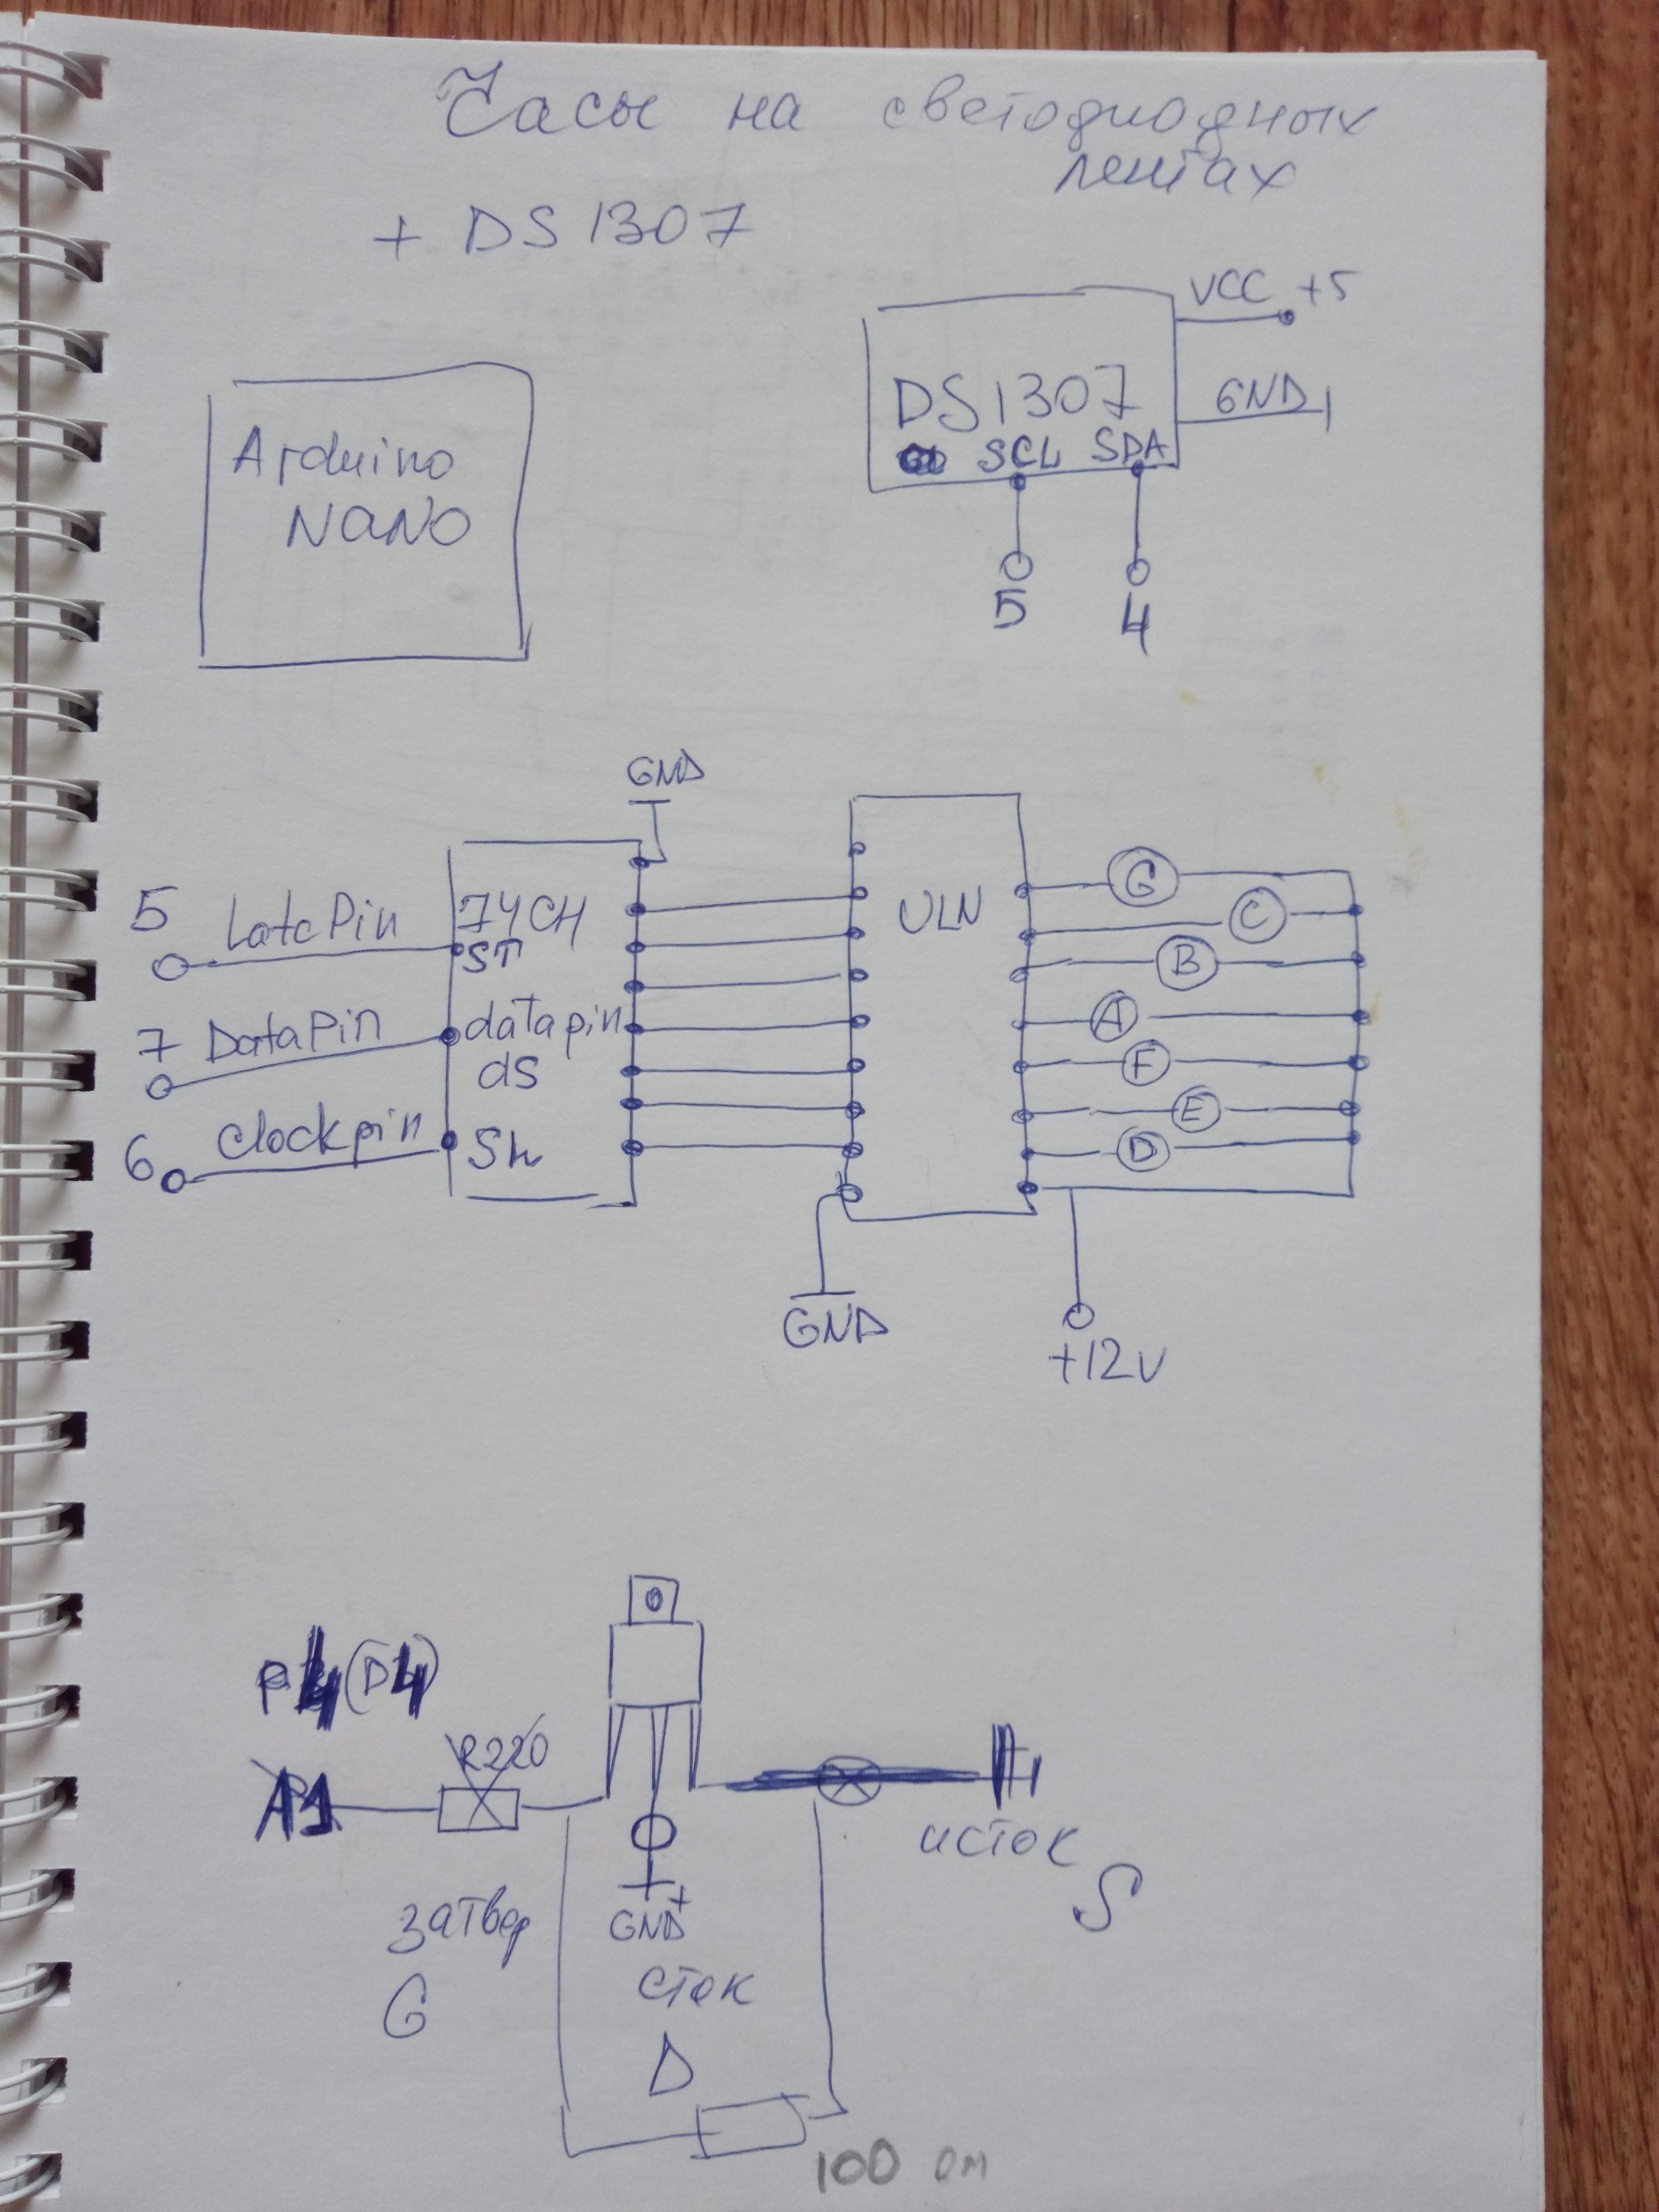 Часы на светодиодных
лентах
+ DS1307
VCC +5
GND
DS1307
SCL SDA
5 4
Arduino
NANO
GND
5 LatcPin
74CH
ST
ULN
G
C
B
7 DataPin
datapin
ds
A
F
6 Clockpin
Sh
E
D
GND
+12V
P4(D4)
R220
A1
затвор
G
GND
сток
D
исток
S
100 ом